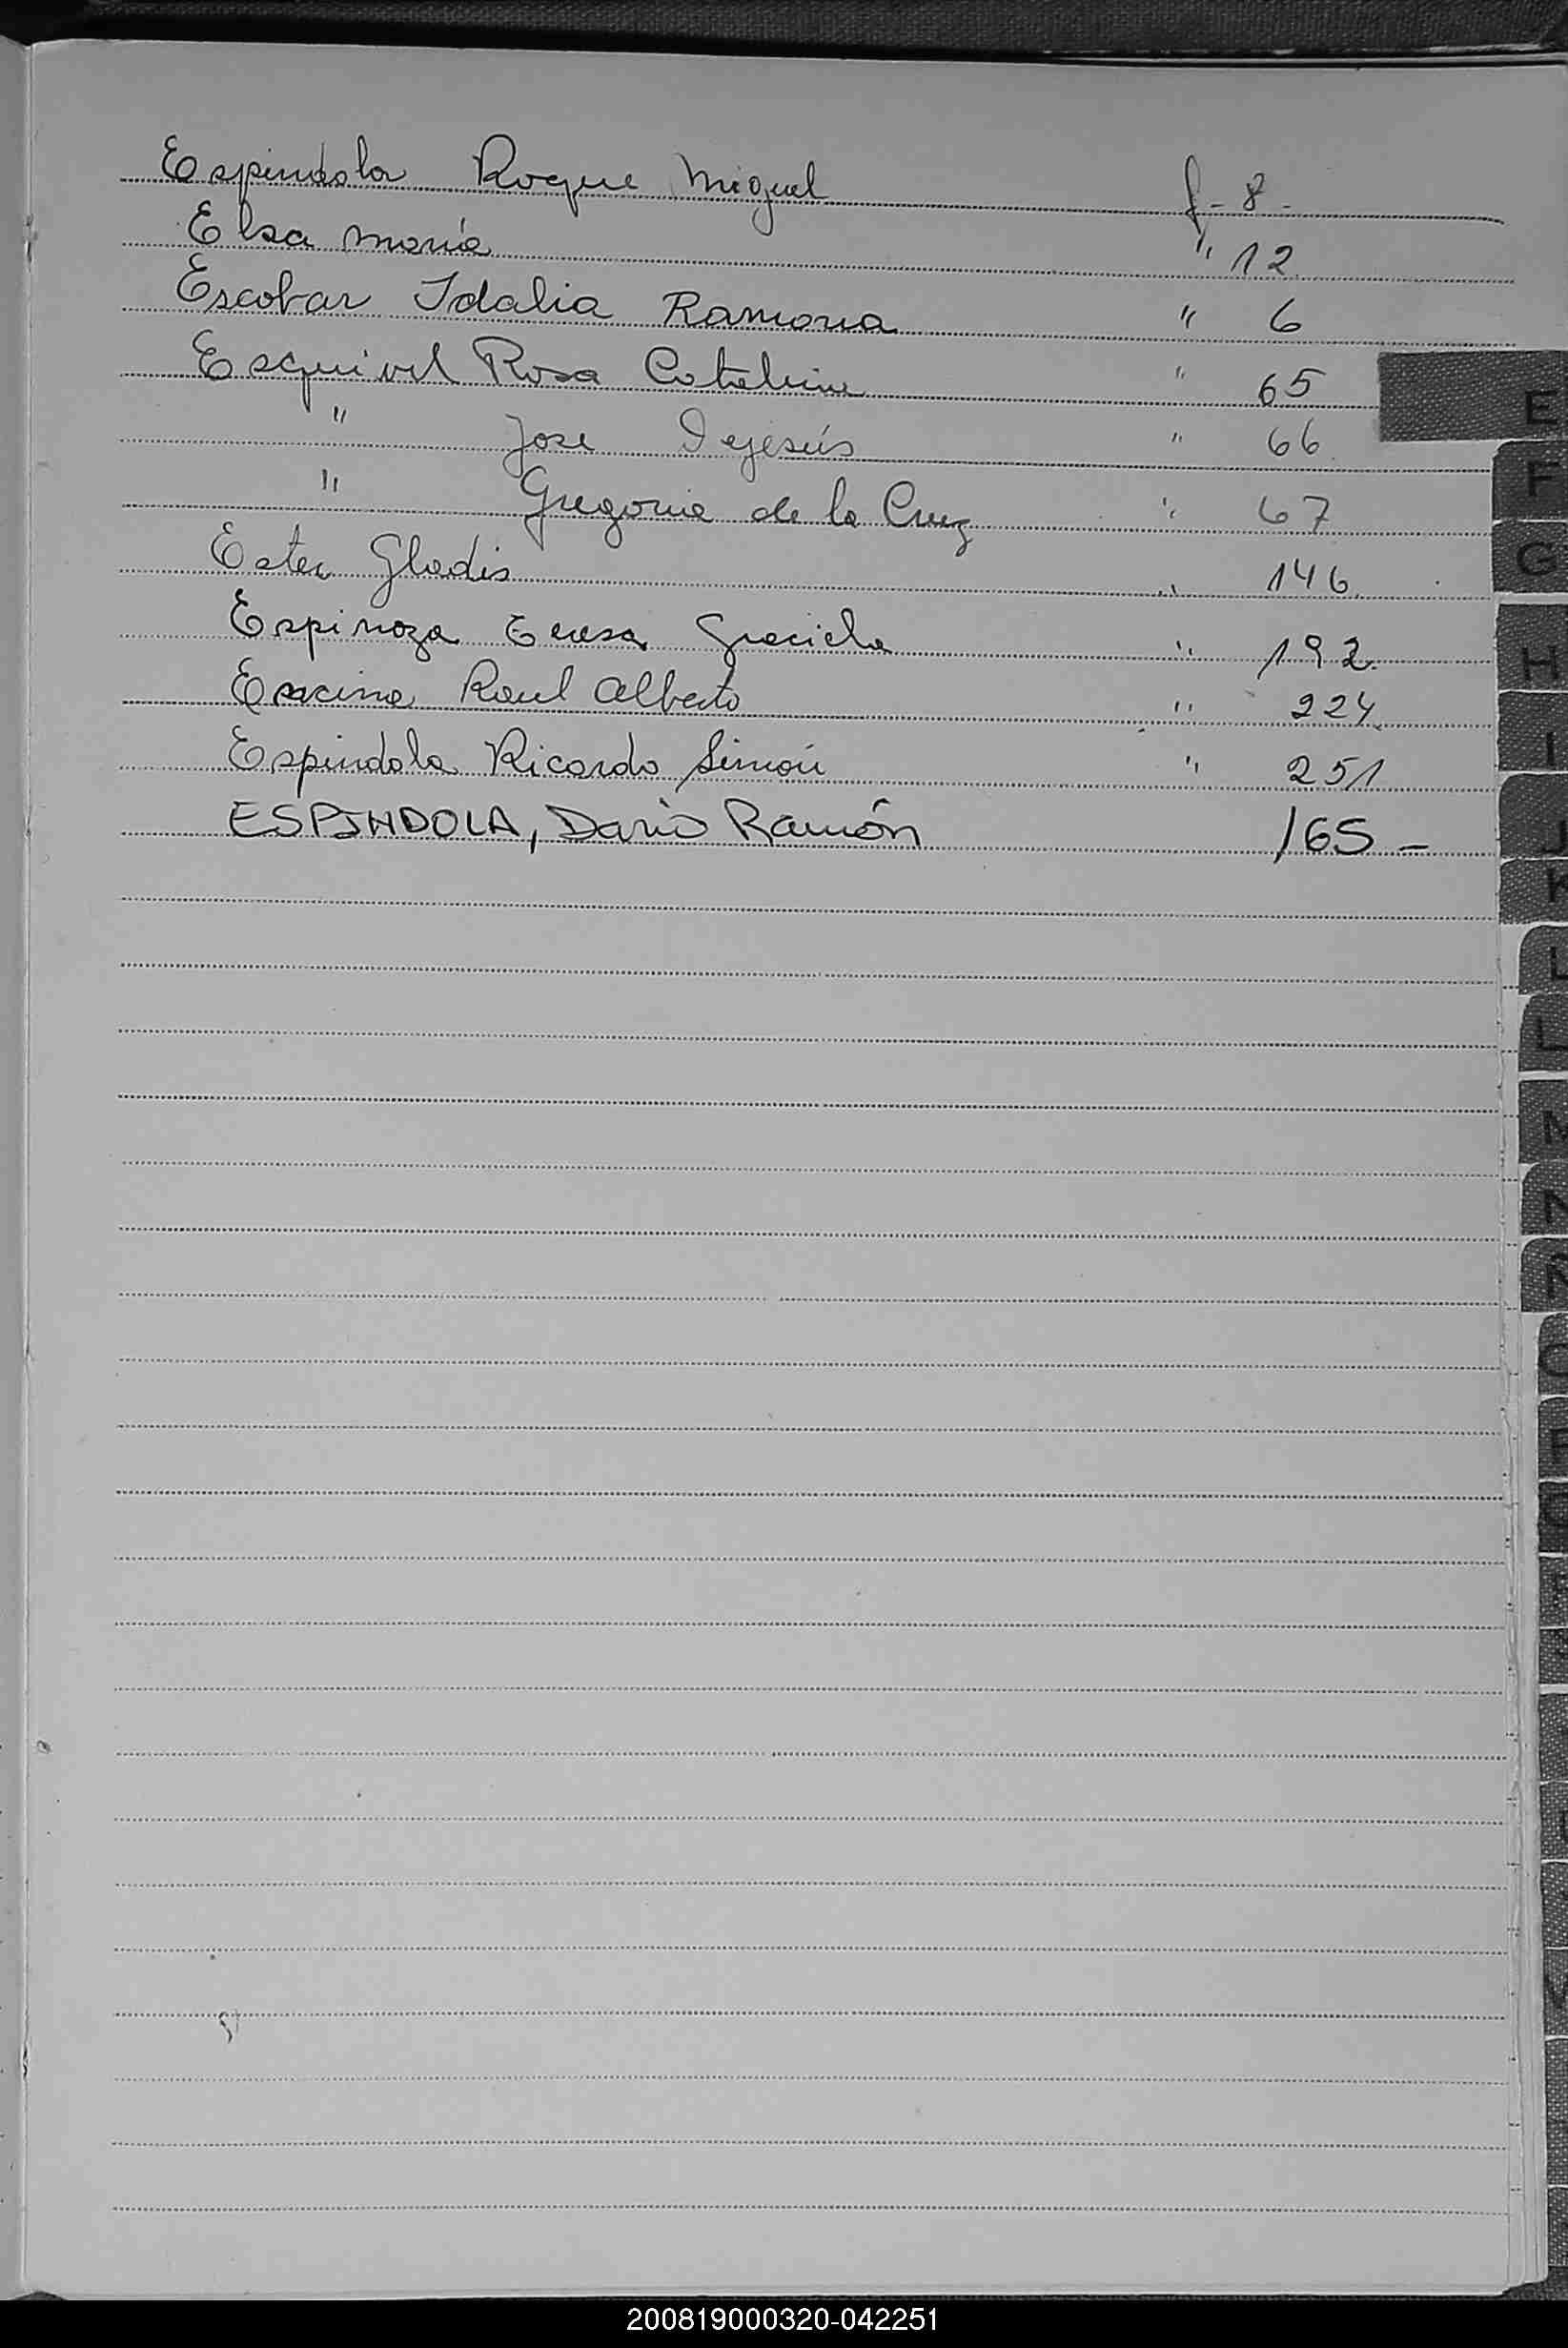 Espindola Roque Miguel f - 8 -
Elsa maría " 12
Escobar Idalia Ramona " 6
Esquivel Rosa Catalina " 65
" Jose Dejesús " 66
" Gregoria de la Cruz " 67
Ester Gladis " 146
Espinoza Teresa Graciela " 192
Encina Raul Alberto " 224
Espindola Ricardo Simón " 251
ESPINDOLA, Darío Ramón 165 -
E
F
G
H
I
J
K
L
L
200819000320-042251